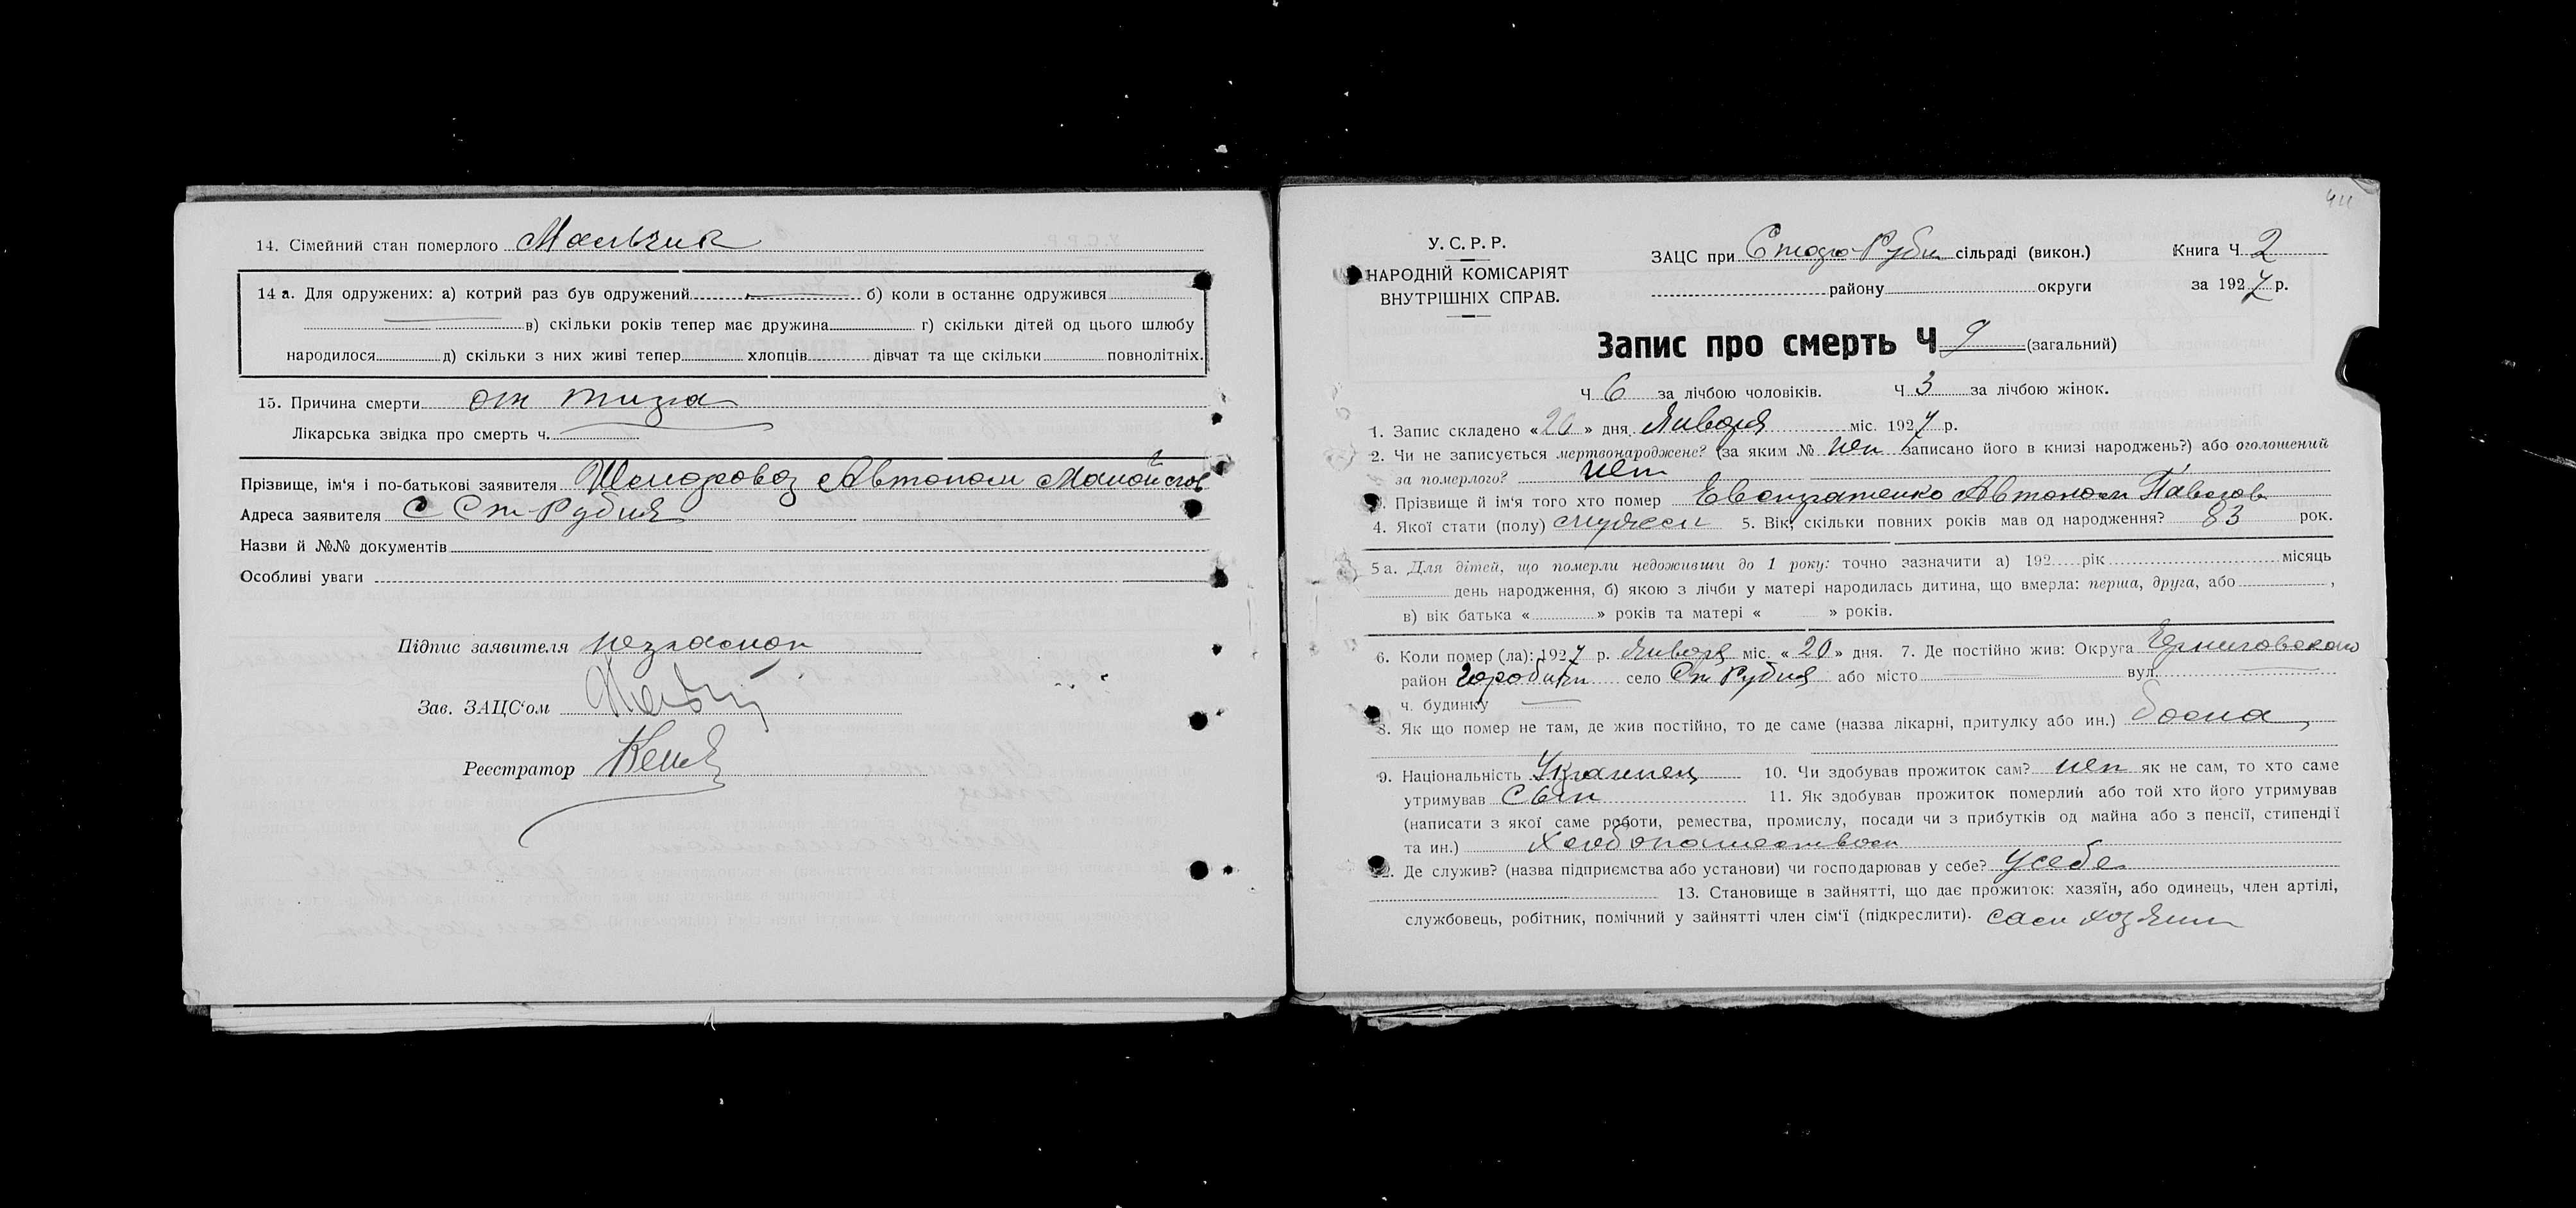 14. Сімейний стан померлого Мальчик
14 а. Для одружених: а) котрий раз був одружений б) коли в останнє одружився
в) скільки років тепер має дружина г) скільки дітей од цього шлюбу
народилося д) скільки з них живі тепер хлопців дівчат та ще скільки повнолітніх.
15. Причина смерти от тифа
Лікарська звідка про смерть ч.
Прізвище, ім'я і по-батькові заявителя Автоном
Адреса заявителя С Ст-Рудня
Назви й №№ документів
Особливі уваги
Підпис заявителя
Зав. ЗАЦС'ом
Реєстратор
У. С. Р. Р.
НАРОДНІЙ КОМІСАРІЯТ
ВНУТРІШНІХ СПРАВ.
ЗАЦС при Старо-Рудн сільраді (викон.) Книга Ч 2
району округи за 1927 р.
Запис про смерть Ч 9 (загальний)
Ч 6 за лічбою чоловіків. Ч 3 за лічбою жінок.
1. Запис складено «20» дня Января міс. 1927 р.
2. Чи не записується мертвонароджене? (за яким № нет записано його в книзі народжень?) або оголошений
за померлого? нет
3. Прізвище й ім'я того хто помер Евстратенко Автоном Павлов
4. Якої стати (полу) мужеск 5. Вік, скільки повних років мав од народження? 83 рок.
5 а. Для дітей, що померли недоживши до 1 року: точно зазначити а) 192 рік місяць
день народження, б) якою з лічби у матері народилась дитина, що вмерла: перша, друга, або ,
в) вік батька « » років та матері « » років.
6. Коли помер (ла): 1927 р. Января міс. «20» дня. 7. Де постійно жив: Округа Черниговского
район село Ст Рудня або місто вул.
ч. будинку
8. Як що помер не там, де жив постійно, то де саме (назва лікарні, притулку або ин.) дома
9. Національність Украинец 10. Чи здобував прожиток сам? нет як не сам, то хто саме
утримував Сын 11. Як здобував прожиток померлий або той хто його утримував
(написати з якої саме роботи, ремества, промислу, посади чи з прибутків од майна або з пенсії, стипендії
та ин.) Хлебопашеством
12. Де служив? (назва підприємства або установи) чи господарював у себе? у себе
13. Становище в зайнятті, що дає прожиток: хазяїн, або одинець, член артілі,
службовець, робітник, помічний у зайнятті член сім'ї (підкреслити). сам хозяин